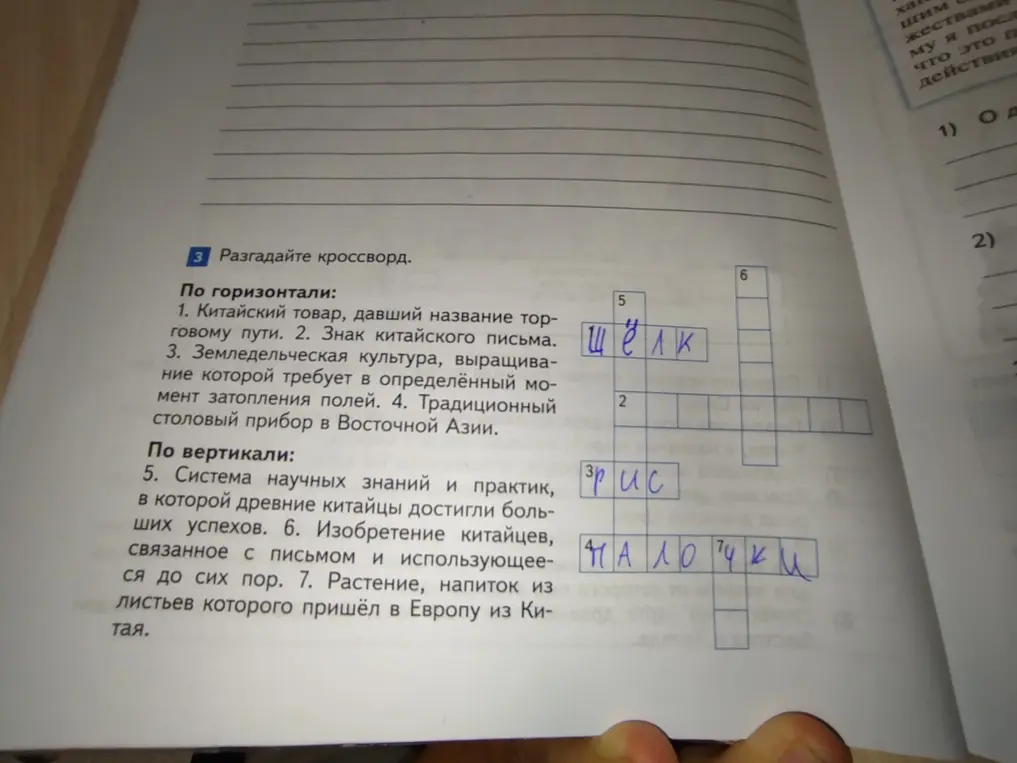 хан
шим с
жествами
му я посл
что это п
действия
1) О д
2)
3 Разгадайте кроссворд.
По горизонтали:
1. Китайский товар, давший название тор-
говому пути. 2. Знак китайского письма.
3. Земледельческая культура, выращива-
ние которой требует в определённый мо-
мент затопления полей. 4. Традиционный
столовый прибор в Восточной Азии.
По вертикали:
5. Система научных знаний и практик,
в которой древние китайцы достигли боль-
ших успехов. 6. Изобретение китайцев,
связанное с письмом и использующее-
ся до сих пор. 7. Растение, напиток из
листьев которого пришёл в Европу из Ки-
тая.
6
5
1 шёлк
2
3 рис
4 палочки 7